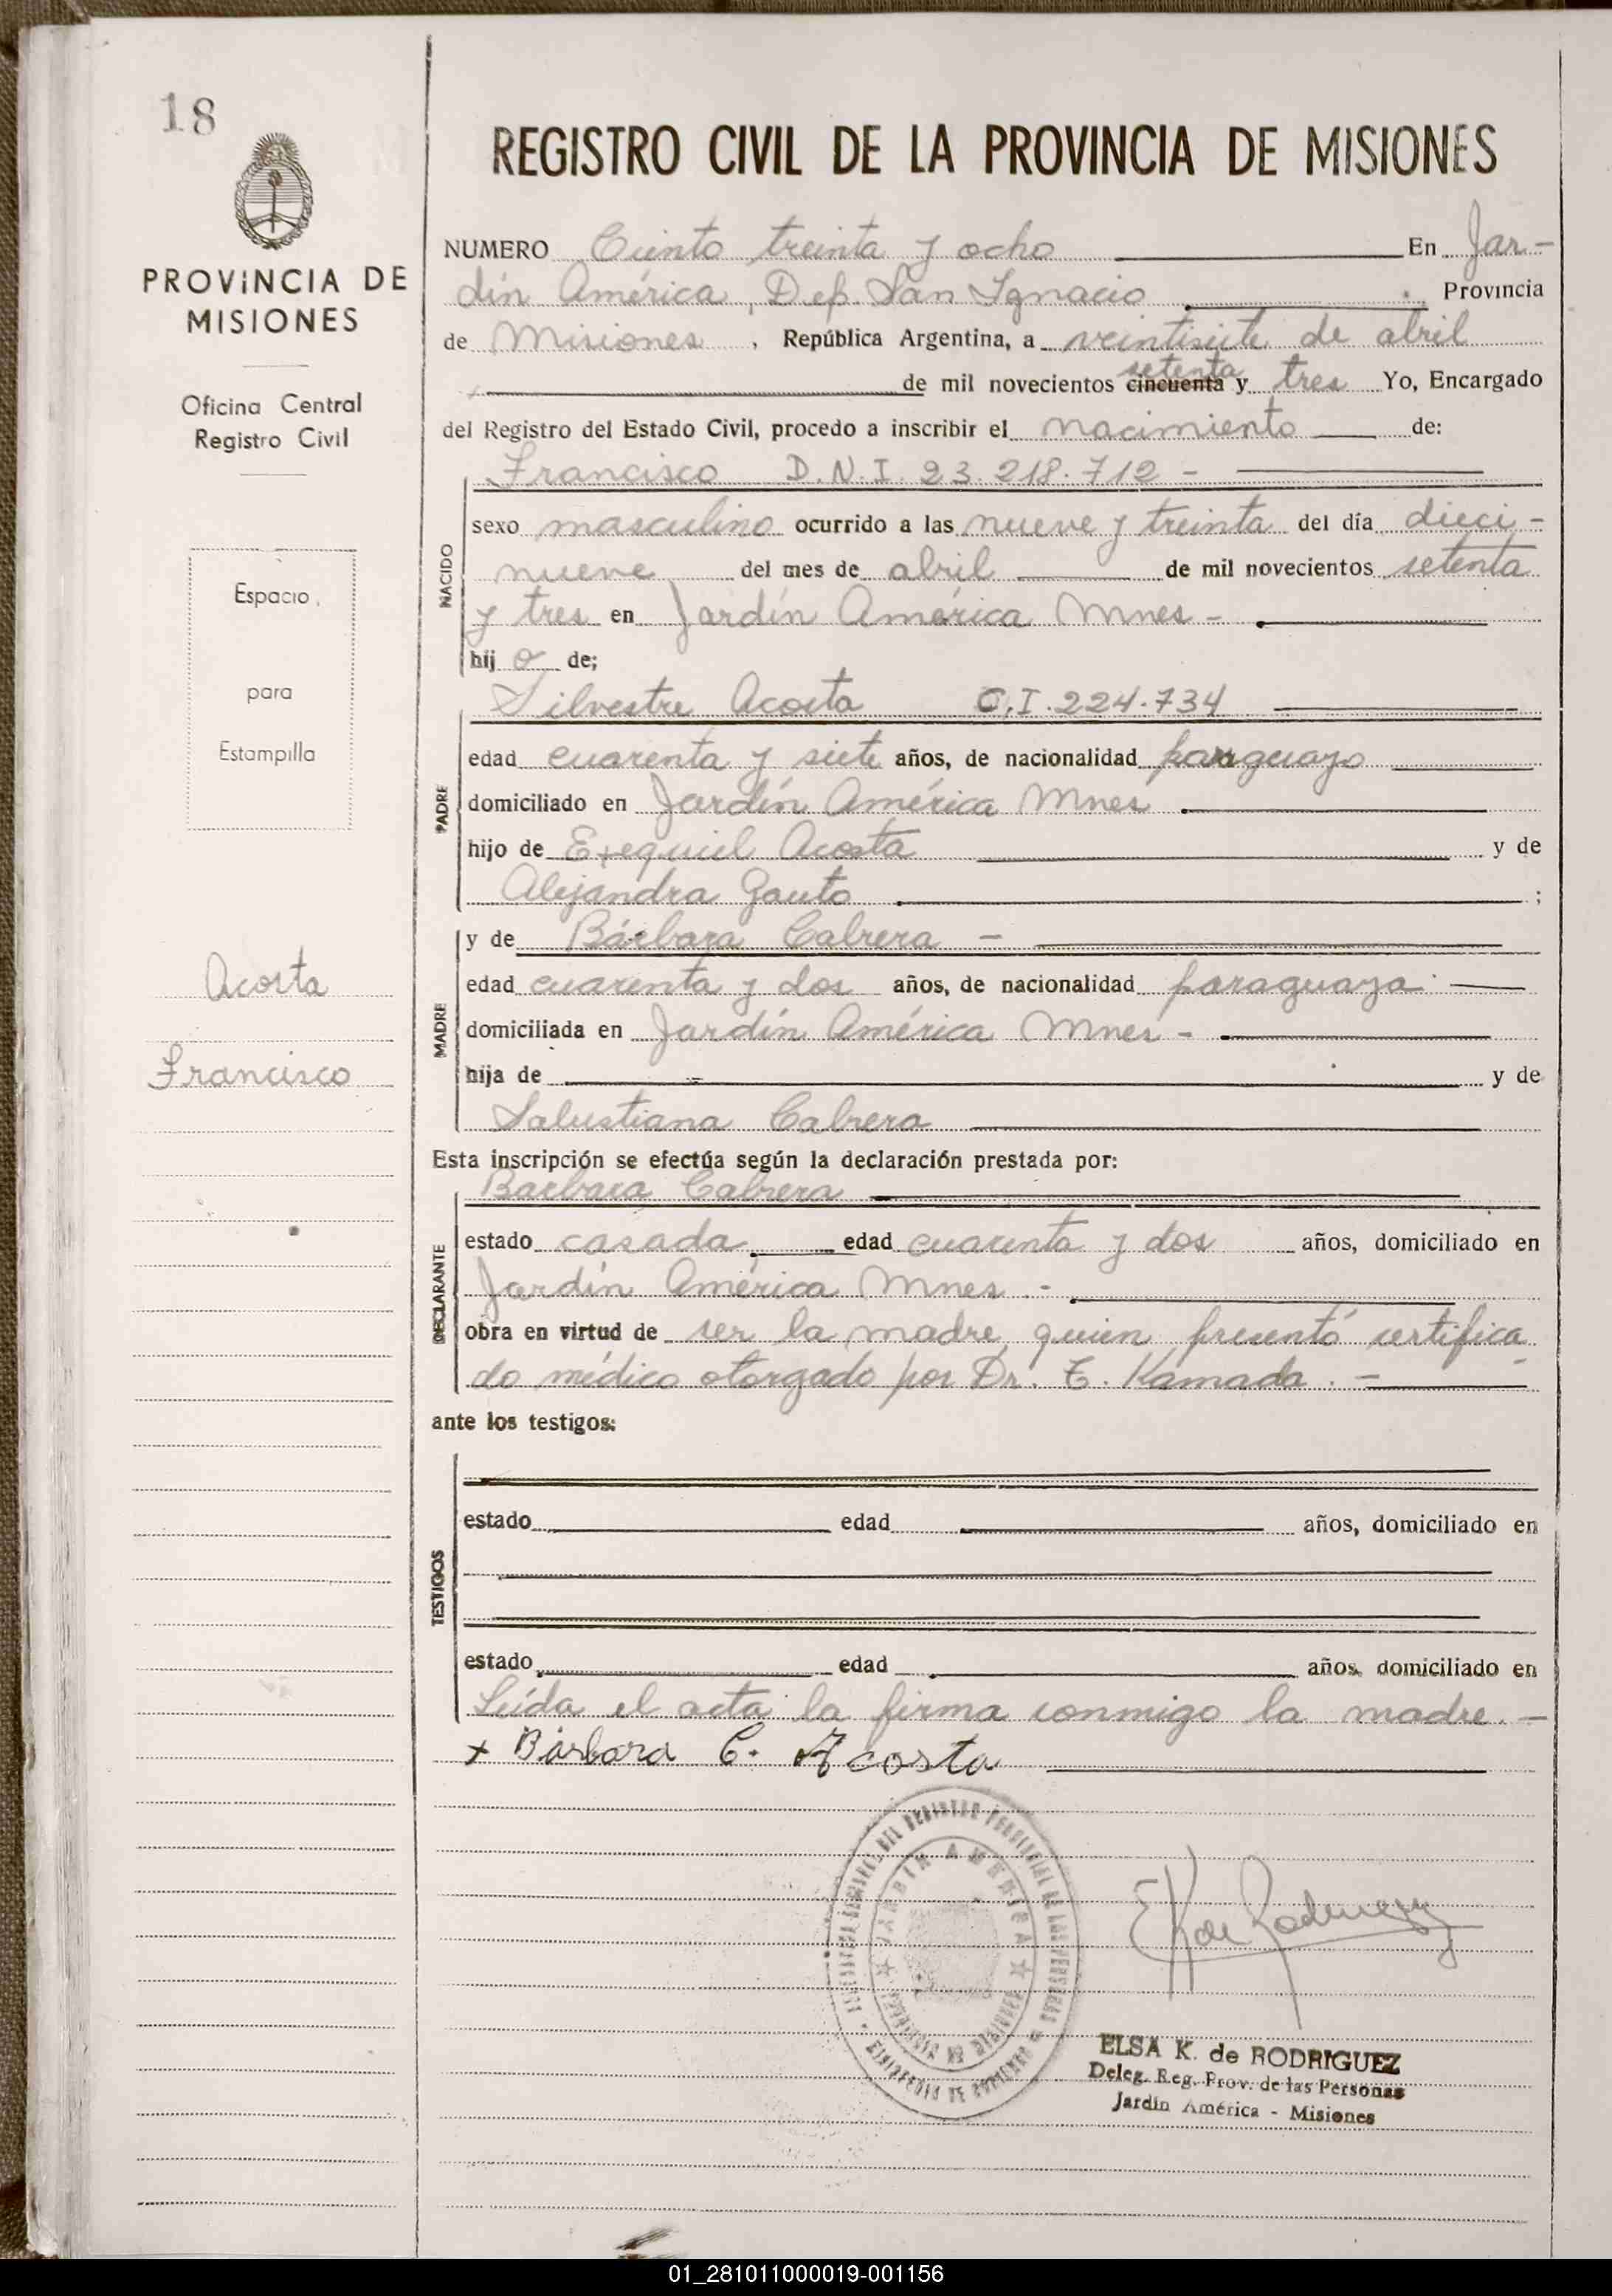 18
PROVINCIA DE
MISIONES
Oficina Central
Registro Civil
Espacio
para
Estampilla
Acosta
Francisco
REGISTRO CIVIL DE LA PROVINCIA DE MISIONES
NUMERO Ciento treinta y ocho En Jar-
dín América, Dep. San Ignacio Provincia
de Misiones, República Argentina, a veintisiete de abril
setenta
de mil novecientos cincuenta y tres Yo, Encargado
del Registro del Estado Civil, procedo a inscribir el nacimiento de:
NACIDO
Francisco D.N.I. 23.218.712 -
sexo masculino ocurrido a las nueve y treinta del día dieci-
nueve del mes de abril de mil novecientos setenta
y tres en Jardín América Mnes -
hij o de;
PADRE
Silvestre Acosta C.I. 224.734
edad cuarenta y siete años, de nacionalidad paraguayo
domiciliado en Jardín América Mnes
hijo de Exequiel Acosta y de
Alejandra Gauto ;
MADRE
y de Bárbara Cabrera -
edad cuarenta y dos años, de nacionalidad paraguaya
domiciliada en Jardín América Mnes -
hija de y de
Salustiana Cabrera
Esta inscripción se efectúa según la declaración prestada por:
DECLARANTE
Barbara Cabrera
estado casada edad cuarenta y dos años, domiciliado en
Jardín América Mnes -
obra en virtud de ser la madre quien presentó certifica
do médico otorgado por Dr. T. Kamada. -
ante los testigos:
TESTIGOS
estado edad años, domiciliado en
estado edad años, domiciliado en
Leída el acta la firma conmigo la madre. -
x Bárbara C. Acosta
JARDIN AMERICA
E K de Rodriguez
ELSA K. de RODRIGUEZ
Deleg. Reg. Prov. de las Personas
Jardín América - Misiones
01_281011000019-001156